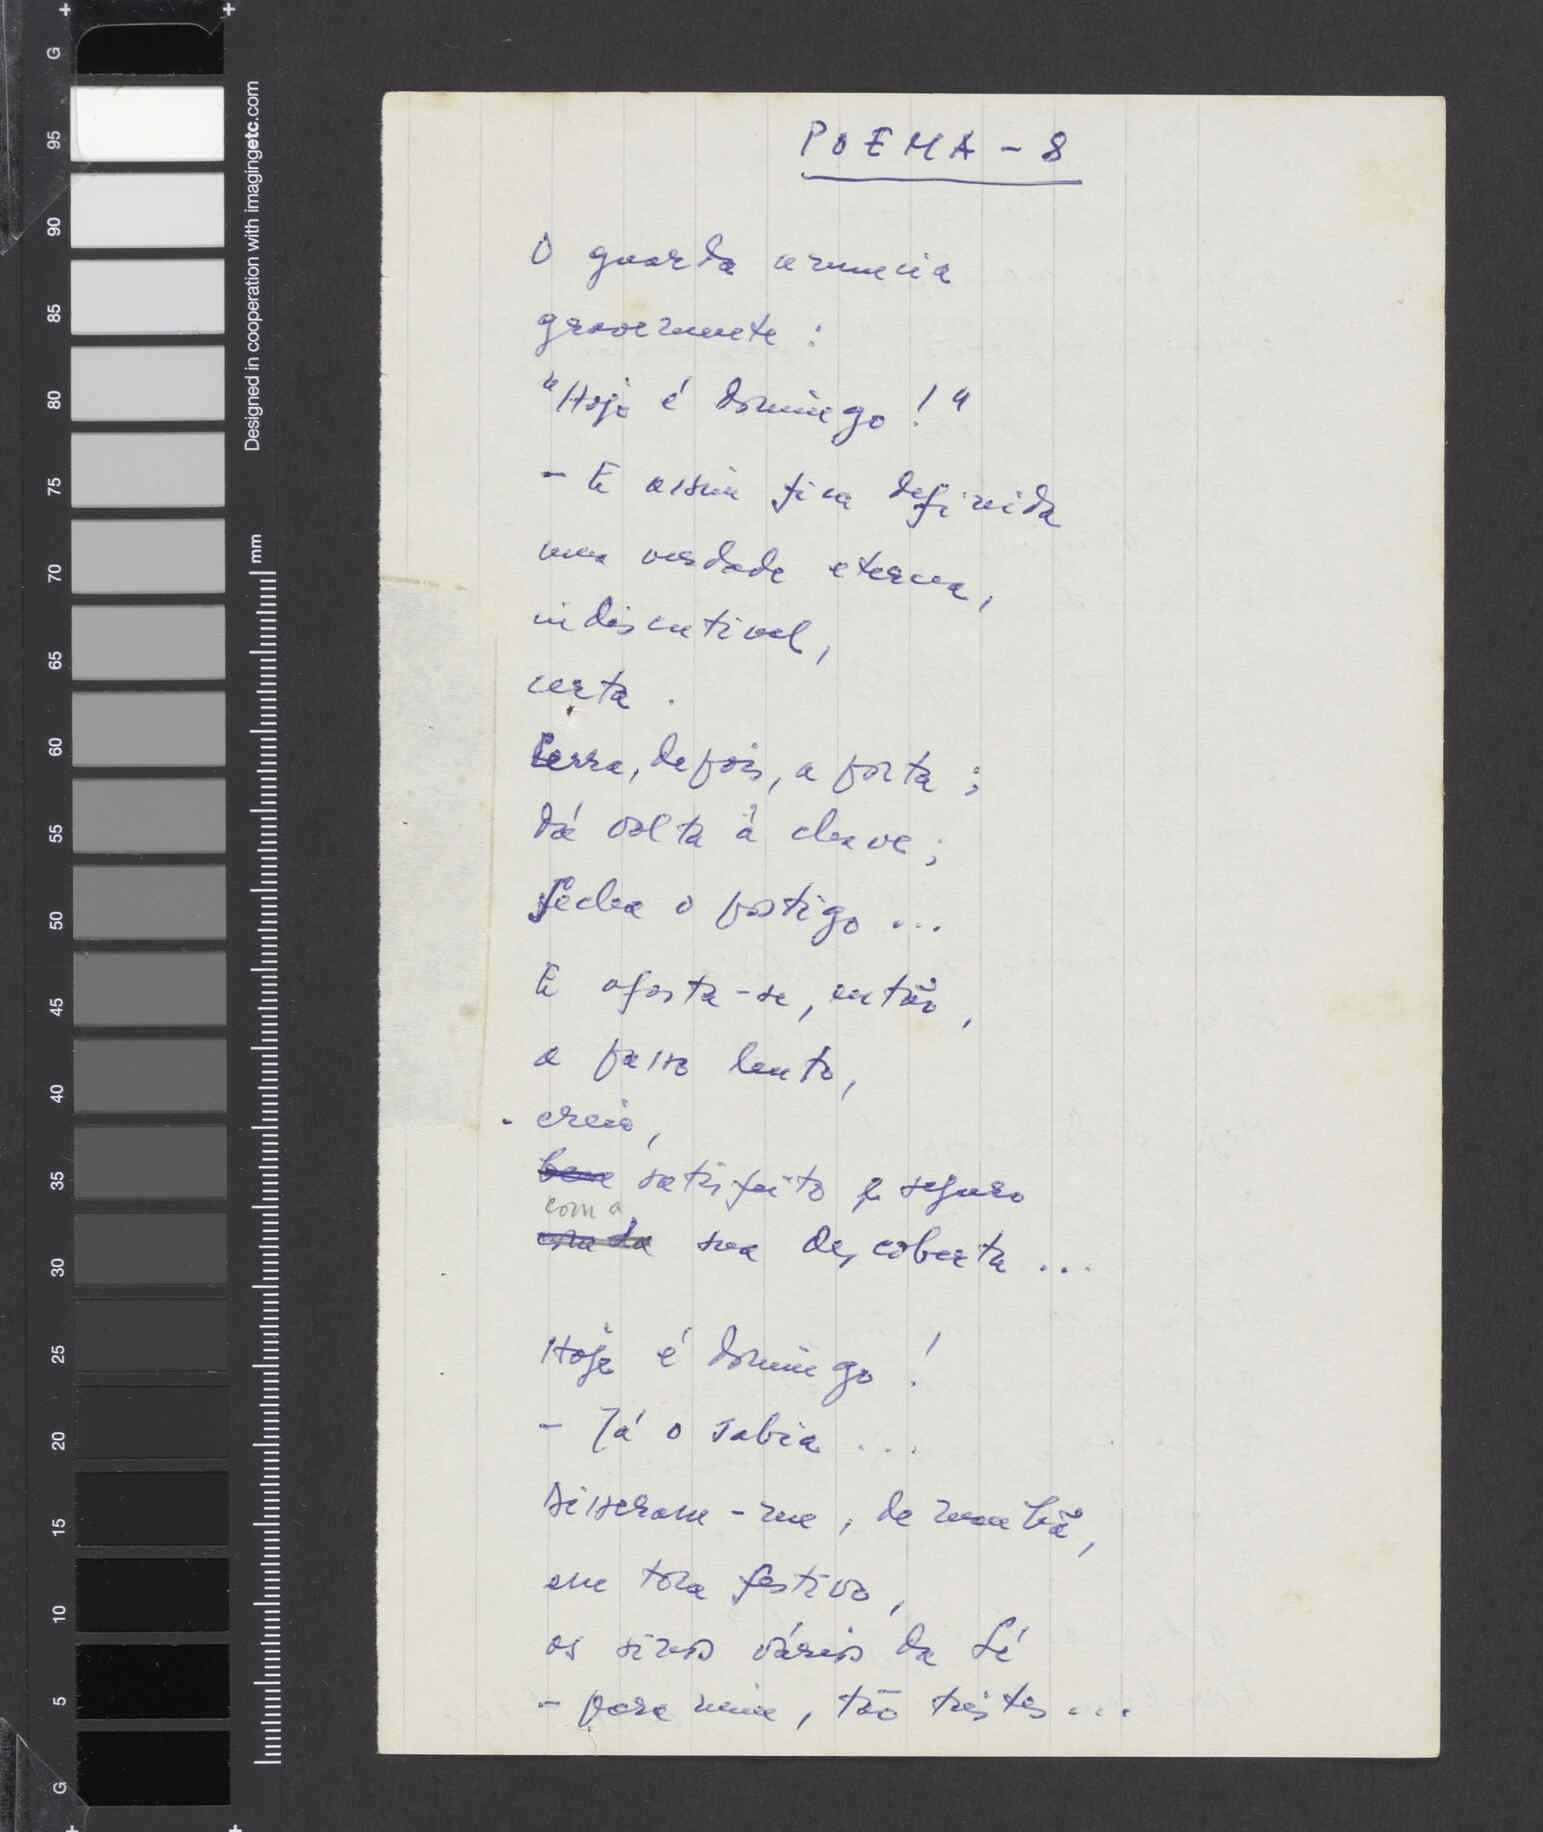 POEMA - 8
O guarda anuncia
gravemente :
"Hoje é domingo !"
- E assim fica definida
uma verdade eterna,
indiscutível,
certa .
Cerra, depois, a porta ;
dá volta à chave ;
fecha o postigo ...
E afasta-se, então,
a passo lento,
- creio,
bem satisfeito e seguro
com a
sua descoberta ...
Hoje é domingo !
- Já o sabia ...
Disseram-me, de manhã,
em tom festivo,
os sinos vários da Sé
- para mim, tão tristes ...
G
95
90
85
80
75
70
65
60
55
50
45
40
35
30
25
20
15
10
5
G
Designed in cooperation with imagingetc.com
mm